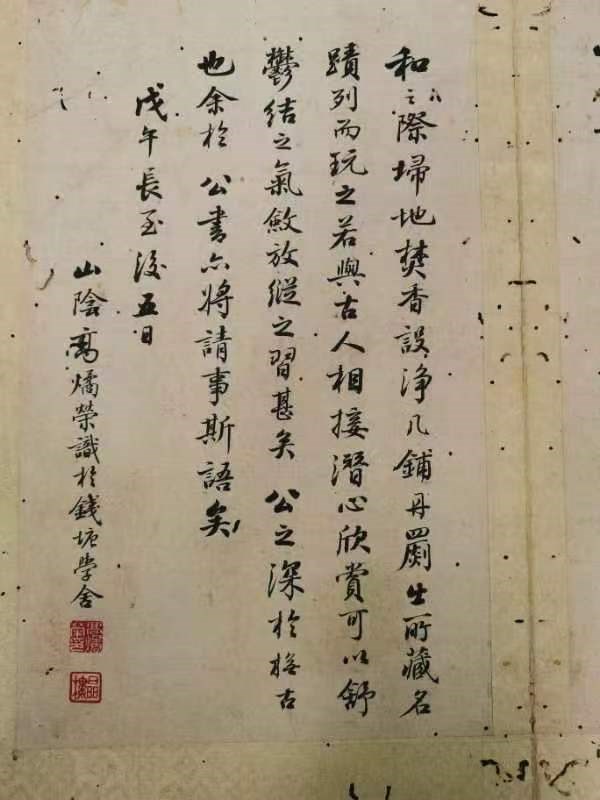 和之際埽地焚香設淨几鋪丹罽出所藏名
蹟列而玩之若與古人相接潛心欣賞可以舒
鬱結之氣斂放縱之習甚矣 公之深於格古
也余於 公書亦將請事斯語矣
戊午長至後五日
山陰高燏榮識於錢塘學舍